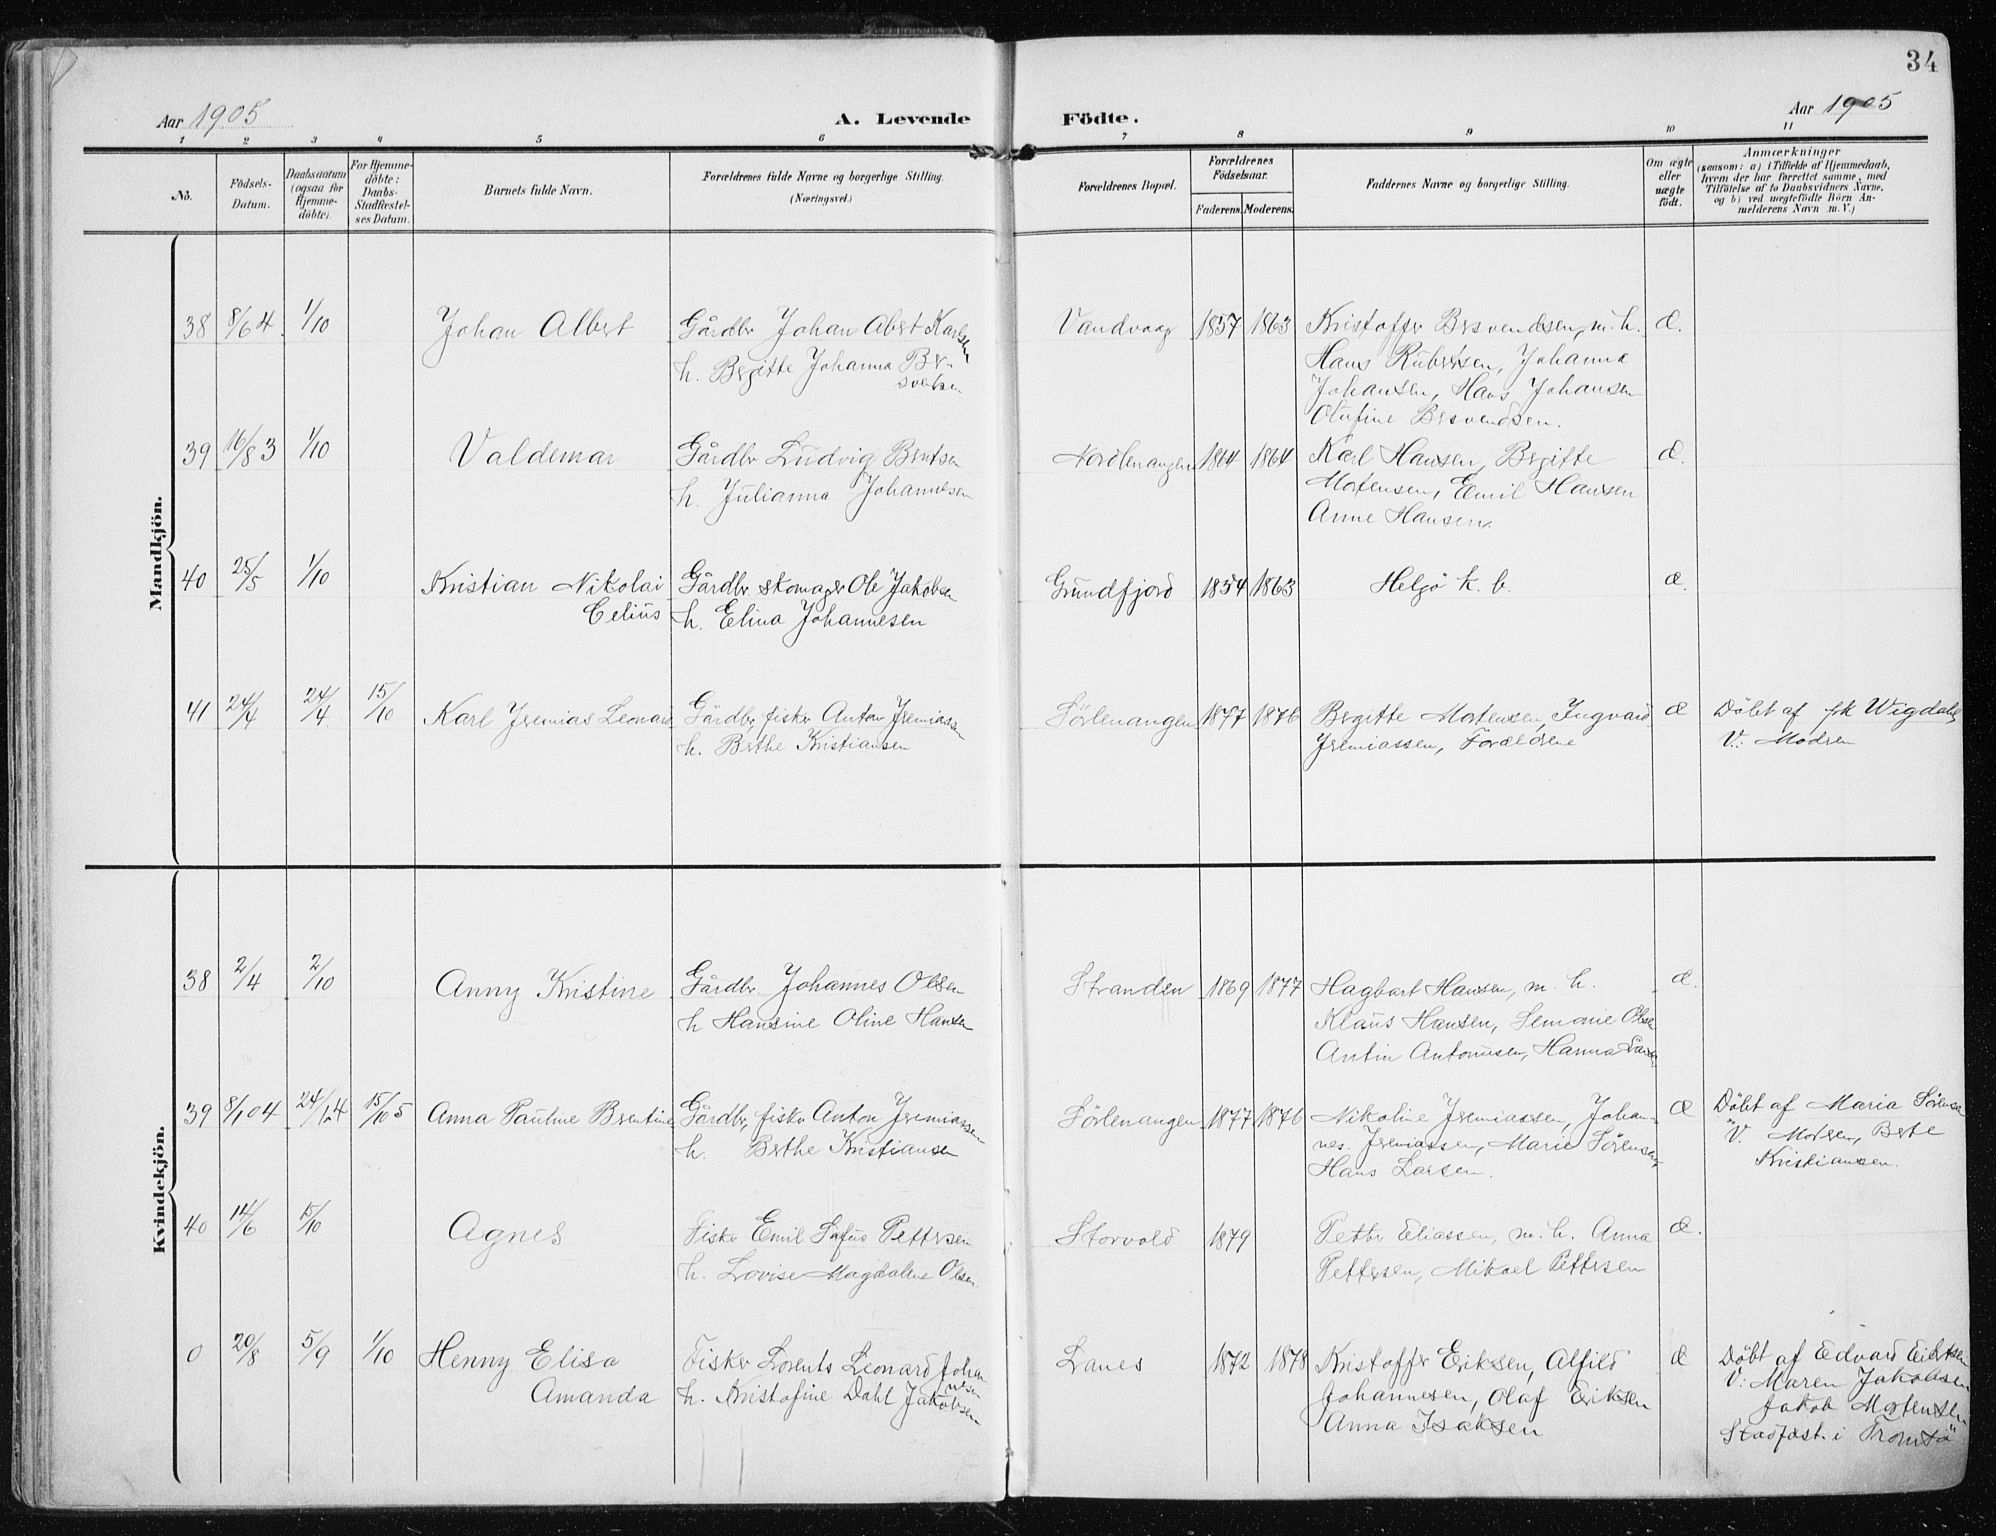 34
Aar 1905
A. Levende Födte.
Aar 1905
1 2 3 4 5 6 7 8 9 10 11
No.
Födsels-Datum.
Daabsdatum (ogsaa for Hjemme-döbte).
For Hjemme-döbte: Daabs-Stadfæstel-ses Datum.
Barnets fulde Navn.
Forældrenes fulde Navne og borgerlige Stilling. (Næringsvei.)
Forældrenes Bopæl.
Forældrenes Födselsaar.
Faderens. Moderens.
Faddernes Navne og borgerlige Stilling.
Om ægte eller uægte födt.
Anmærkninger
(saasom: a) i Tilfælde af Hjemmedaab,
hvem der har forrettet samme, med
Tilföielse af to Daabsvidners Navne,
og b) ved uægtefödte Börn An-
melderens Navn m. V.)
Mandkjön.
38 8/6 4 1/10 Johan Albert Gårdbr Johan Abert Karlsen Vandvaag 1857 1863 Kristoffer Bersvendsen, m. h. æ.
h. Bergitte Johanna Ber- Hans Rubertsen, Johanna
Johansen, Hans Johansen
Olufine Bersvendsen.
39 16/8 3 1/10 Valdemar Gårdbr Ludvig Bentsen Nordlenangen 1864 1864 Karl Hansen, Bergitte æ.
h. Julianna Johannesen Mortensen, Emil Hansen
Anne Hansen.
40 25/5 1/10 Kristian Nikolai Gårdbr skomager Ole Jakobsen Grundfjord 1854 1863 Helgö k. b. æ.
Celius h. Elina Johannesen
41 24/4 24/4 15/10 Karl Jeremias Leonard Gårdbr, fisker Anton Jeremiassen Sörlenangen 1877 1876 Bergitte Mortensen, Ingvard æ Döbt af frk Wigdahl
h. Berthe Kristiansen Jeremiassen, Forældrene V: Moderen
Kvindekjön.
38 2/4 2/10 Anny Kristine Gårdbr. Johannes Olsen Stranden 1869 1877 Hagbart Hansen, m. h. æ.
h Hansine Oline Hansen Klaus Hansen, Semonie Olsen
Antin Antonusen, Hanna
39 8/10 4 24/12 4 15/10 5 Anna Pauline Berntine Gårdbr, fisker Anton Jeremiassen Sörlenangen 1877 1876 Nikoline Jeremiassen, Johan- æ Döbt af Maria Sörensen
h. Berthe Kristiansen nes Jeremiassen, Marie Sörensen V. Moderen, Berte
Hans Larsen. Kristiansen.
40 14/6 15/10 Agnes Fisker Emil Sofus Pettersen Storvold 1879 Petter Eliassen, m. h. Anna æ.
h. Lovise Magdalene Olsen. Pettersen, Mikael Pettersen
0 20/8 5/9 1/10 Henny Elisa Fisker Lorents Leonard Johannesen Lanes 1872 1878 Kristoffer Eriksen, Alfild æ Döbt af Edvard Eilertsen
Amanda h. Kristofine Dahl Jakobsen Johannesen, Olaf Eriksen V: Maren Jakobsen
Anna Isaksen Jakob Mortensen
Stadfæst. i Tromsö